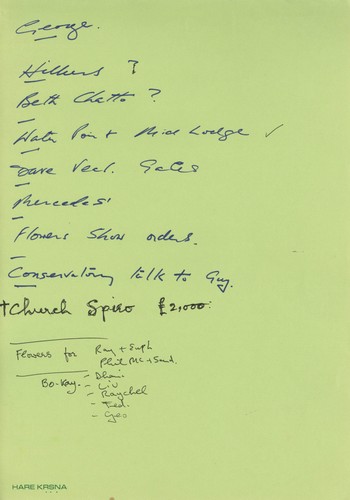 George.
Hilliers ?
Beth Chatto ?
Water Point Mid Lodge ✓
Dave Vect. Gates
Mercedes'
Flowers Show orders.
Conservatory talk to Guy.
Church Spire £2,000.
Flowers for Ray + Suph
Phil Mc + Sand.
Bo-Kay. - Dhani
- Liv
- Raychel
- Ted.
- Geo
HARE KRSNA